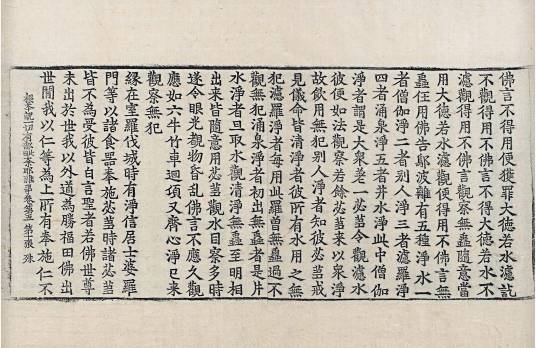 佛言不得用便獲罪大德若水濾訖
不觀得用不佛言不得大德若水不
濾觀得用不佛言觀察無蟲隨意當
用大德若水濾觀便得用不佛言無
蟲任用佛告鄔波離有五種淨水一
者僧伽淨二者別人淨三者濾羅淨
四者涌泉淨五者井水淨此中僧伽
淨者謂是大衆差一苾芻令觀濾水
彼便如法觀察若餘苾芻來以衆淨
故飲用無犯別人淨者知彼苾芻戒
見儀命皆清淨者彼所有水用之無
犯濾羅淨者每用此羅曾無蟲過不
觀無犯涌泉淨者初出無蟲者是片
水淨者旦取水觀清淨無蟲至明相
出來皆隨意用苾芻觀水目察多時
遂令眼光觀物昏亂佛言不應久觀
應如六牛竹車迴項又齊心淨已來
觀察無犯
緣在室羅伐城時有淨信居士婆羅
門等以諸食器奉施苾芻時諸苾芻
皆不為受彼皆白言聖者若佛世尊
未出於世我以外道為勝福田佛出
世間我以仁等為上所有奉施仁不
根本說一切有部毗奈耶雜事卷第五 第十張 殊